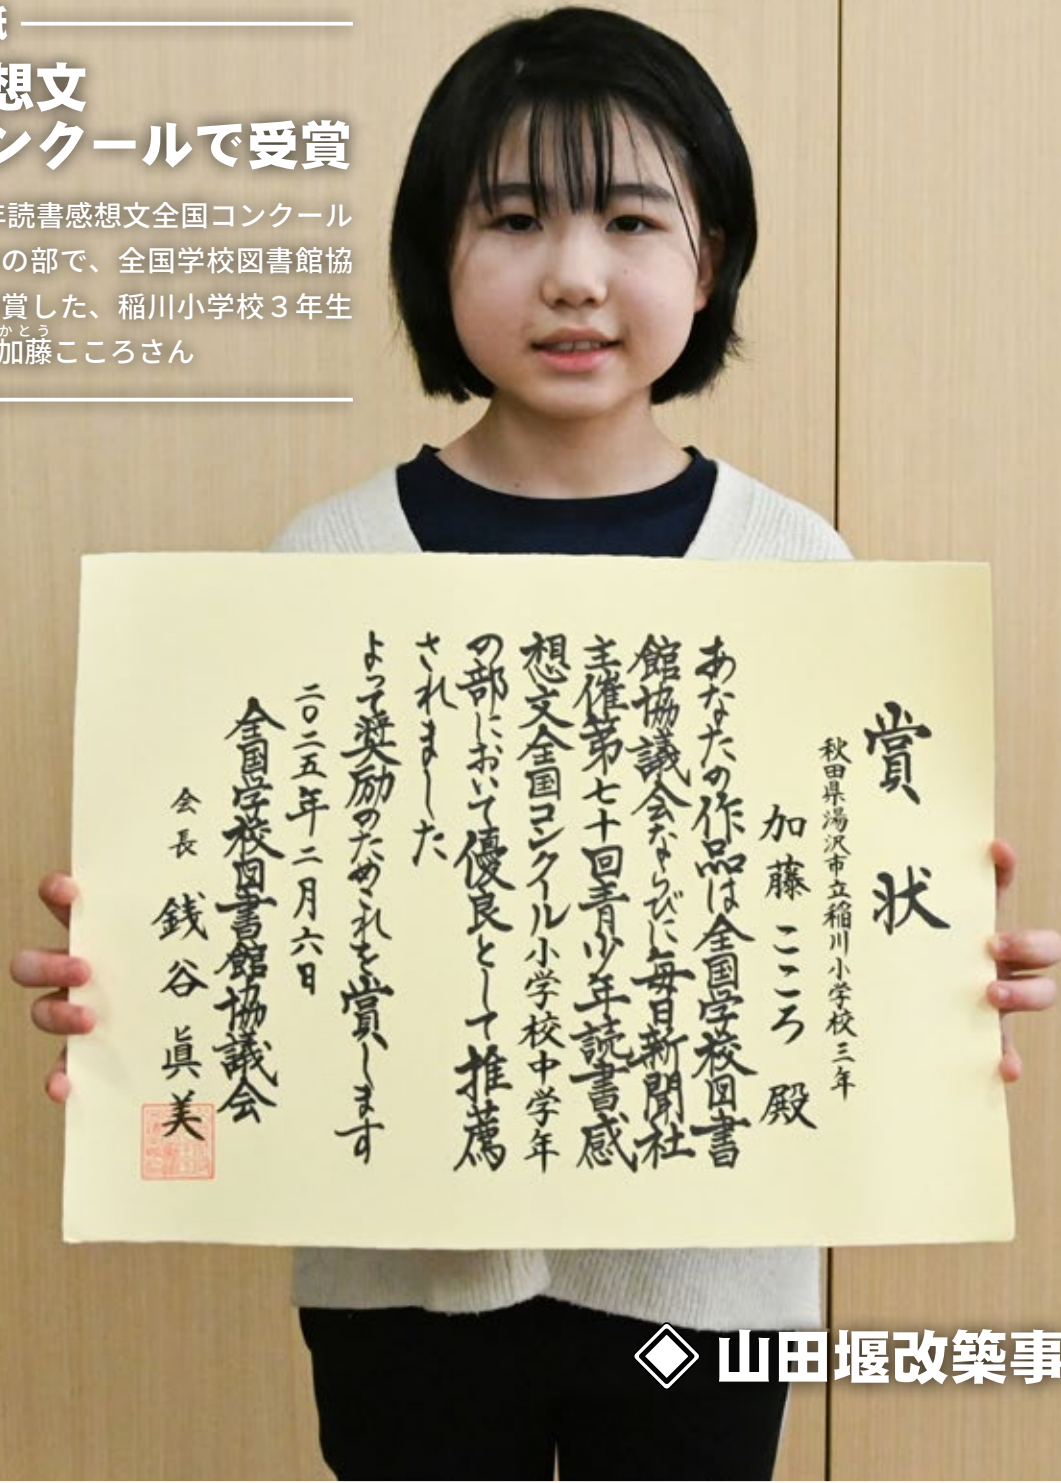 紙
想文
ンクールで受賞
年読書感想文全国コンクール
の部で、全国学校図書館協
賞した、稲川小学校３年生
かとう
加藤こころさん
賞状
秋田県湯沢市立稲川小学校三年
加藤こころ 殿
あなたの作品は全国学校図書
館協議会ならびに毎日新聞社
主催第七十回青少年読書感
想文全国コンクール小学校中学年
の部において優良として推薦
されました
よって奨励のためこれを賞します
二〇二五年二月六日
全国学校図書館協議会
会長 銭谷眞美
山田堰改築事